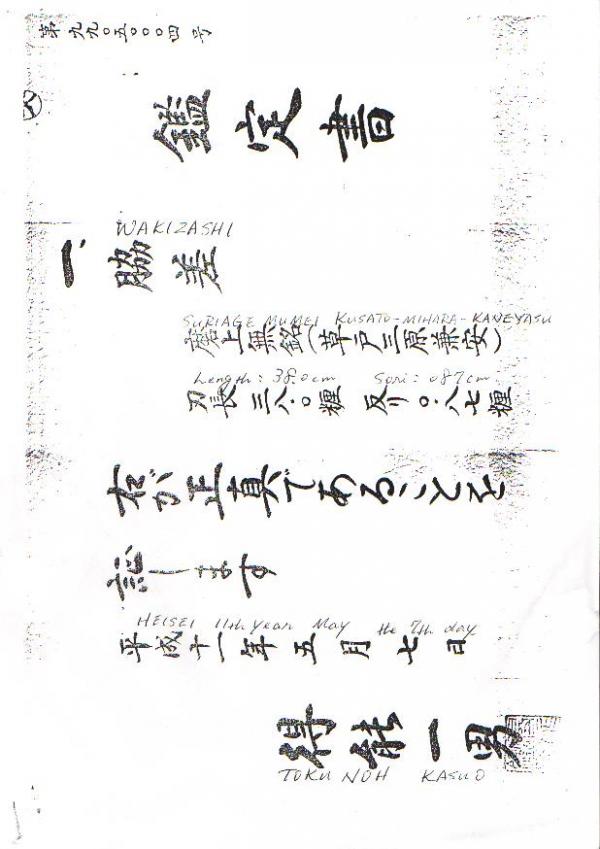 第九九〇五〇〇〇四号
鑑定書
WAKIZASHI
一、脇差
SURIAGE MUMEI KUSATO-MIHARA-KANEYASU
磨上無銘(草戸三原兼安)
Length: 38.0cm Sori: 0.87cm
刃長 三八.〇糎 反り〇.八七糎
右が正真であることを
証します
HEISEI 11th year May the 7th day
平成十一年五月七日
得能一男
TOKU NOH KASUO